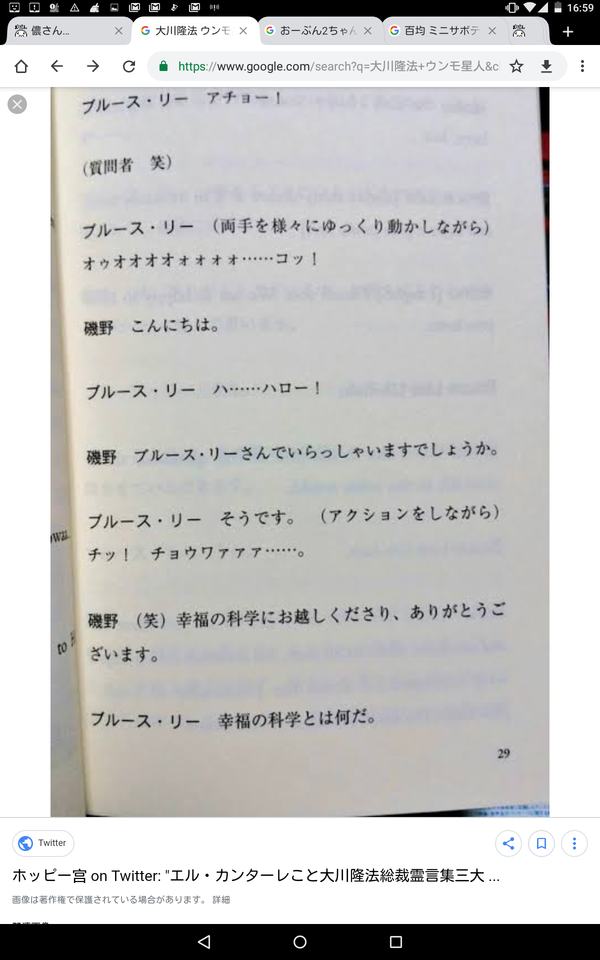 16:59
儂さん...
大川隆法 ウンモ
おーぷん2ちゃん
百均 ミニサボテ
https://www.google.com/search?q=大川隆法+ウンモ星人&c
ブルース・リー アチョー！
（質問者 笑）
ブルース・リー （両手を様々にゆっくり動かしながら）
オゥオオオオォォォォ……コッ！
磯野 こんにちは。
ブルース・リー ハ……ハロー！
磯野 ブルース・リーさんでいらっしゃいますでしょうか。
ブルース・リー そうです。（アクションをしながら）
チッ！ チョウワァァァ……。
磯野 （笑）幸福の科学にお越しくださり、ありがとうご
ざいます。
ブルース・リー 幸福の科学とは何だ。
29
to
Twitter
ホッピー宮 on Twitter: "エル・カンターレこと大川隆法総裁霊言集三大 ...
画像は著作権で保護されている場合があります。 詳細